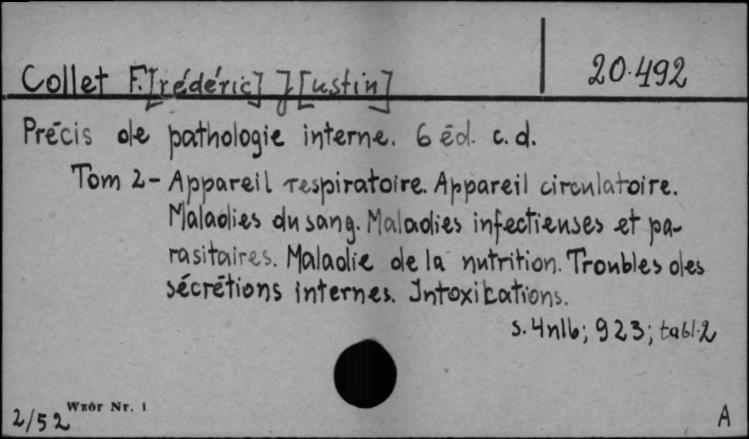 20.492
Collet F.[rédéric] J[ustin]
Précis de pathologie interne. 6 éd. c.d.
Tom 2 - Appareil respiratoire. Appareil circulatoire.
Maladies du sang. Maladies infectieuses et pa-
rasitaires. Maladie de la nutrition. Troubles des
sécrétions internes. Intoxications.
s. 4nlb; 923; tabl. 2
Wzór Nr. 1
2/52
A